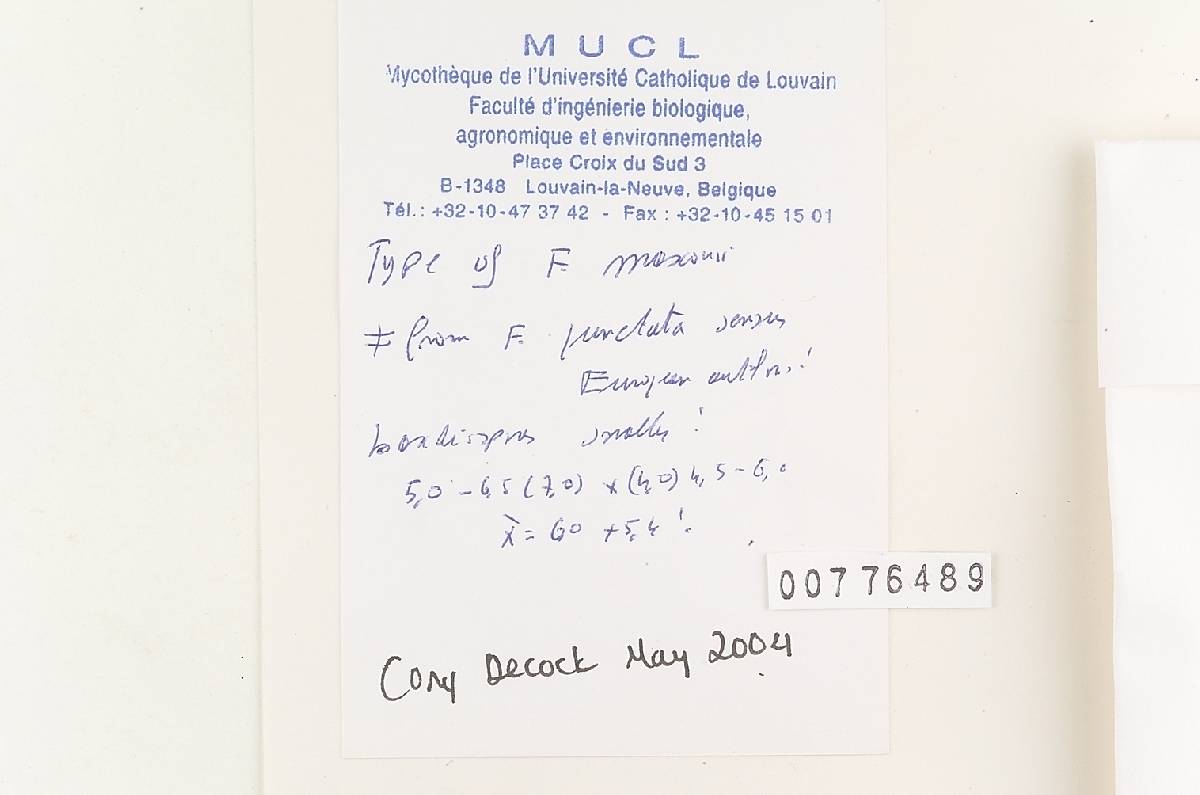 M U C L
Mycothèque de l'Université Catholique de Louvain
Faculté d'ingénierie biologique,
agronomique et environnementale
Place Croix du Sud 3
B-1348 Louvain-la-Neuve, Belgique
Tél.: +32-10-47 37 42 - Fax : +32-10-45 15 01
Type of F.
≠ from F. punctata sensus
European auths.!
basidiospores smaller !
5,0 - 6,5 (7,0) x (4,0) 4,5 - 6,0
x̄ = 6,0 x 5,4 !
00776489
Cony Decock May 2004